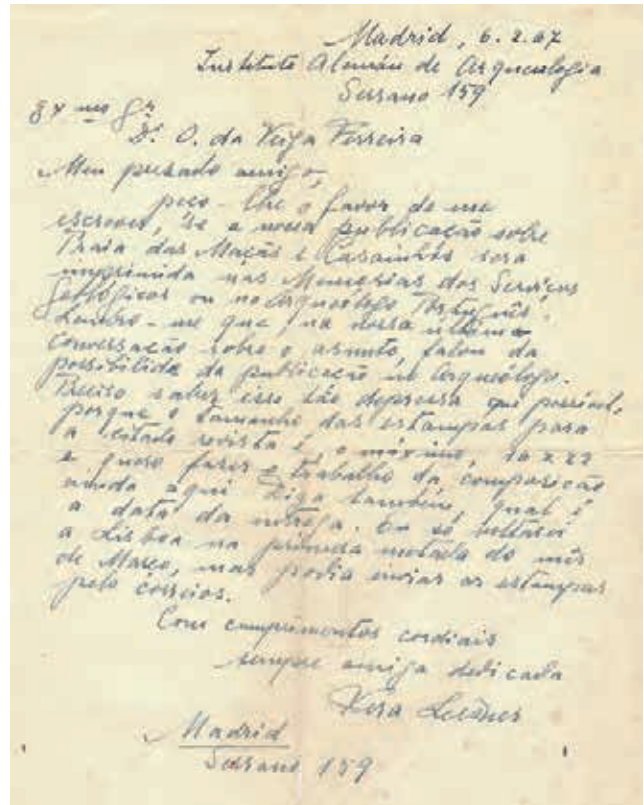 Madrid, 6.2.67
Instituto Alemán de Arqueologia
Serrano 159
Exmo Sr
Dr. O. da Veiga Ferreira
Meu prezado amigo,
peço-lhe o favor de me
escrever, se a nossa publicação sobre
Praia das Maçãs e Casainhos será
imprimida nas Memorias dos Serviços
Geológicos ou no Arqueólogo Português.
Lembro-me que na nossa ultima
conversação sobre o asunto, falou da
possibilida da publicação no Arqueólogo.
Preciso saber isso tão depressa que possível,
porque o tamanho das estampas para
a citada revista é, o máximo, 22
e quero fazer o trabalho da comparição
ainda aqui. Diga também, qual é
a data da entrega. Eu só voltarei
a Lisboa na primeira metade do mês
de Março, mas podia enviar as estampas
pelo correios.
Com cumprimentos cordiais
sempre amiga dedicada
Vera Leisner
Madrid
Serrano 159